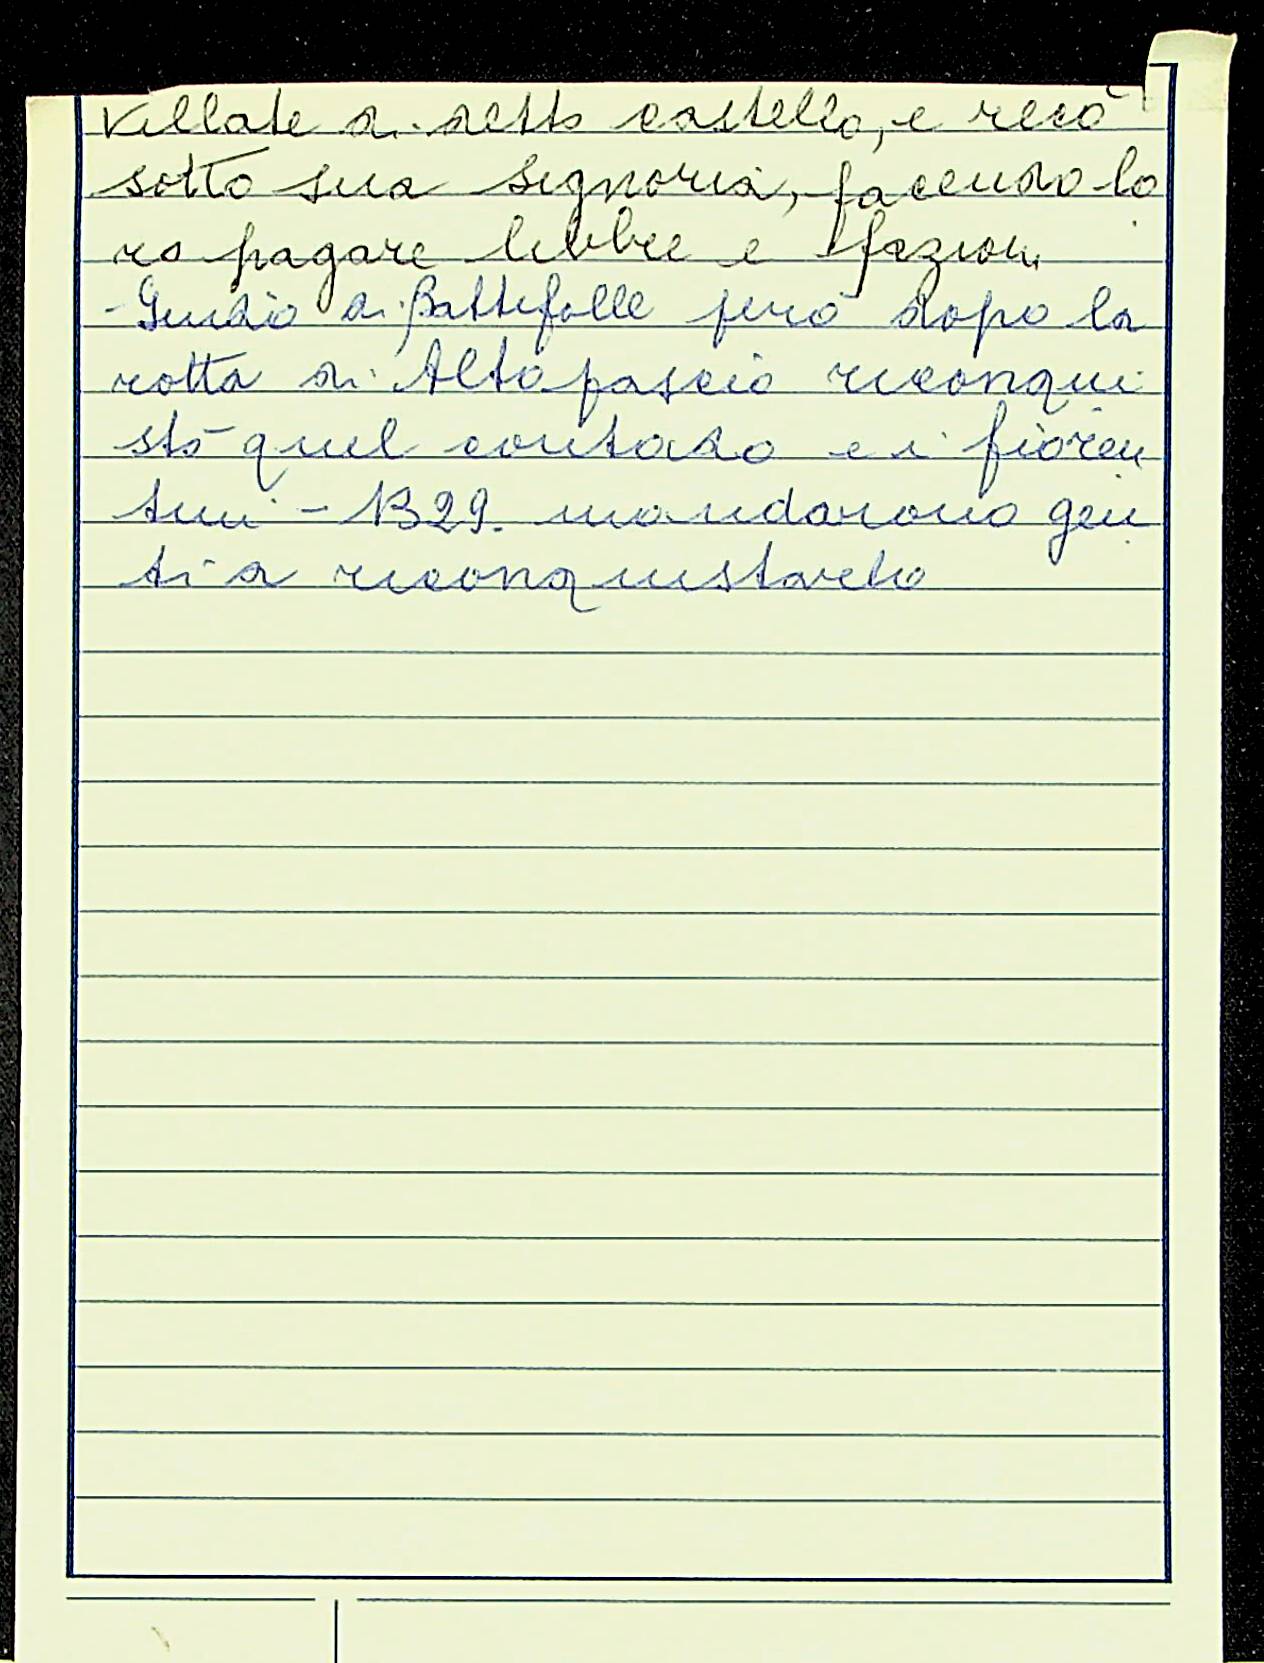 Villate di detto castello, e recò
sotto sua signoria, facendo lo
ro pagare libbre e fazioni
- Guido di Battifolle però dopo la
rotta di Altopascio riconqui
stò quel contado e i fioren
tini - 1329. mandarono gen
ti a riconquistarlo